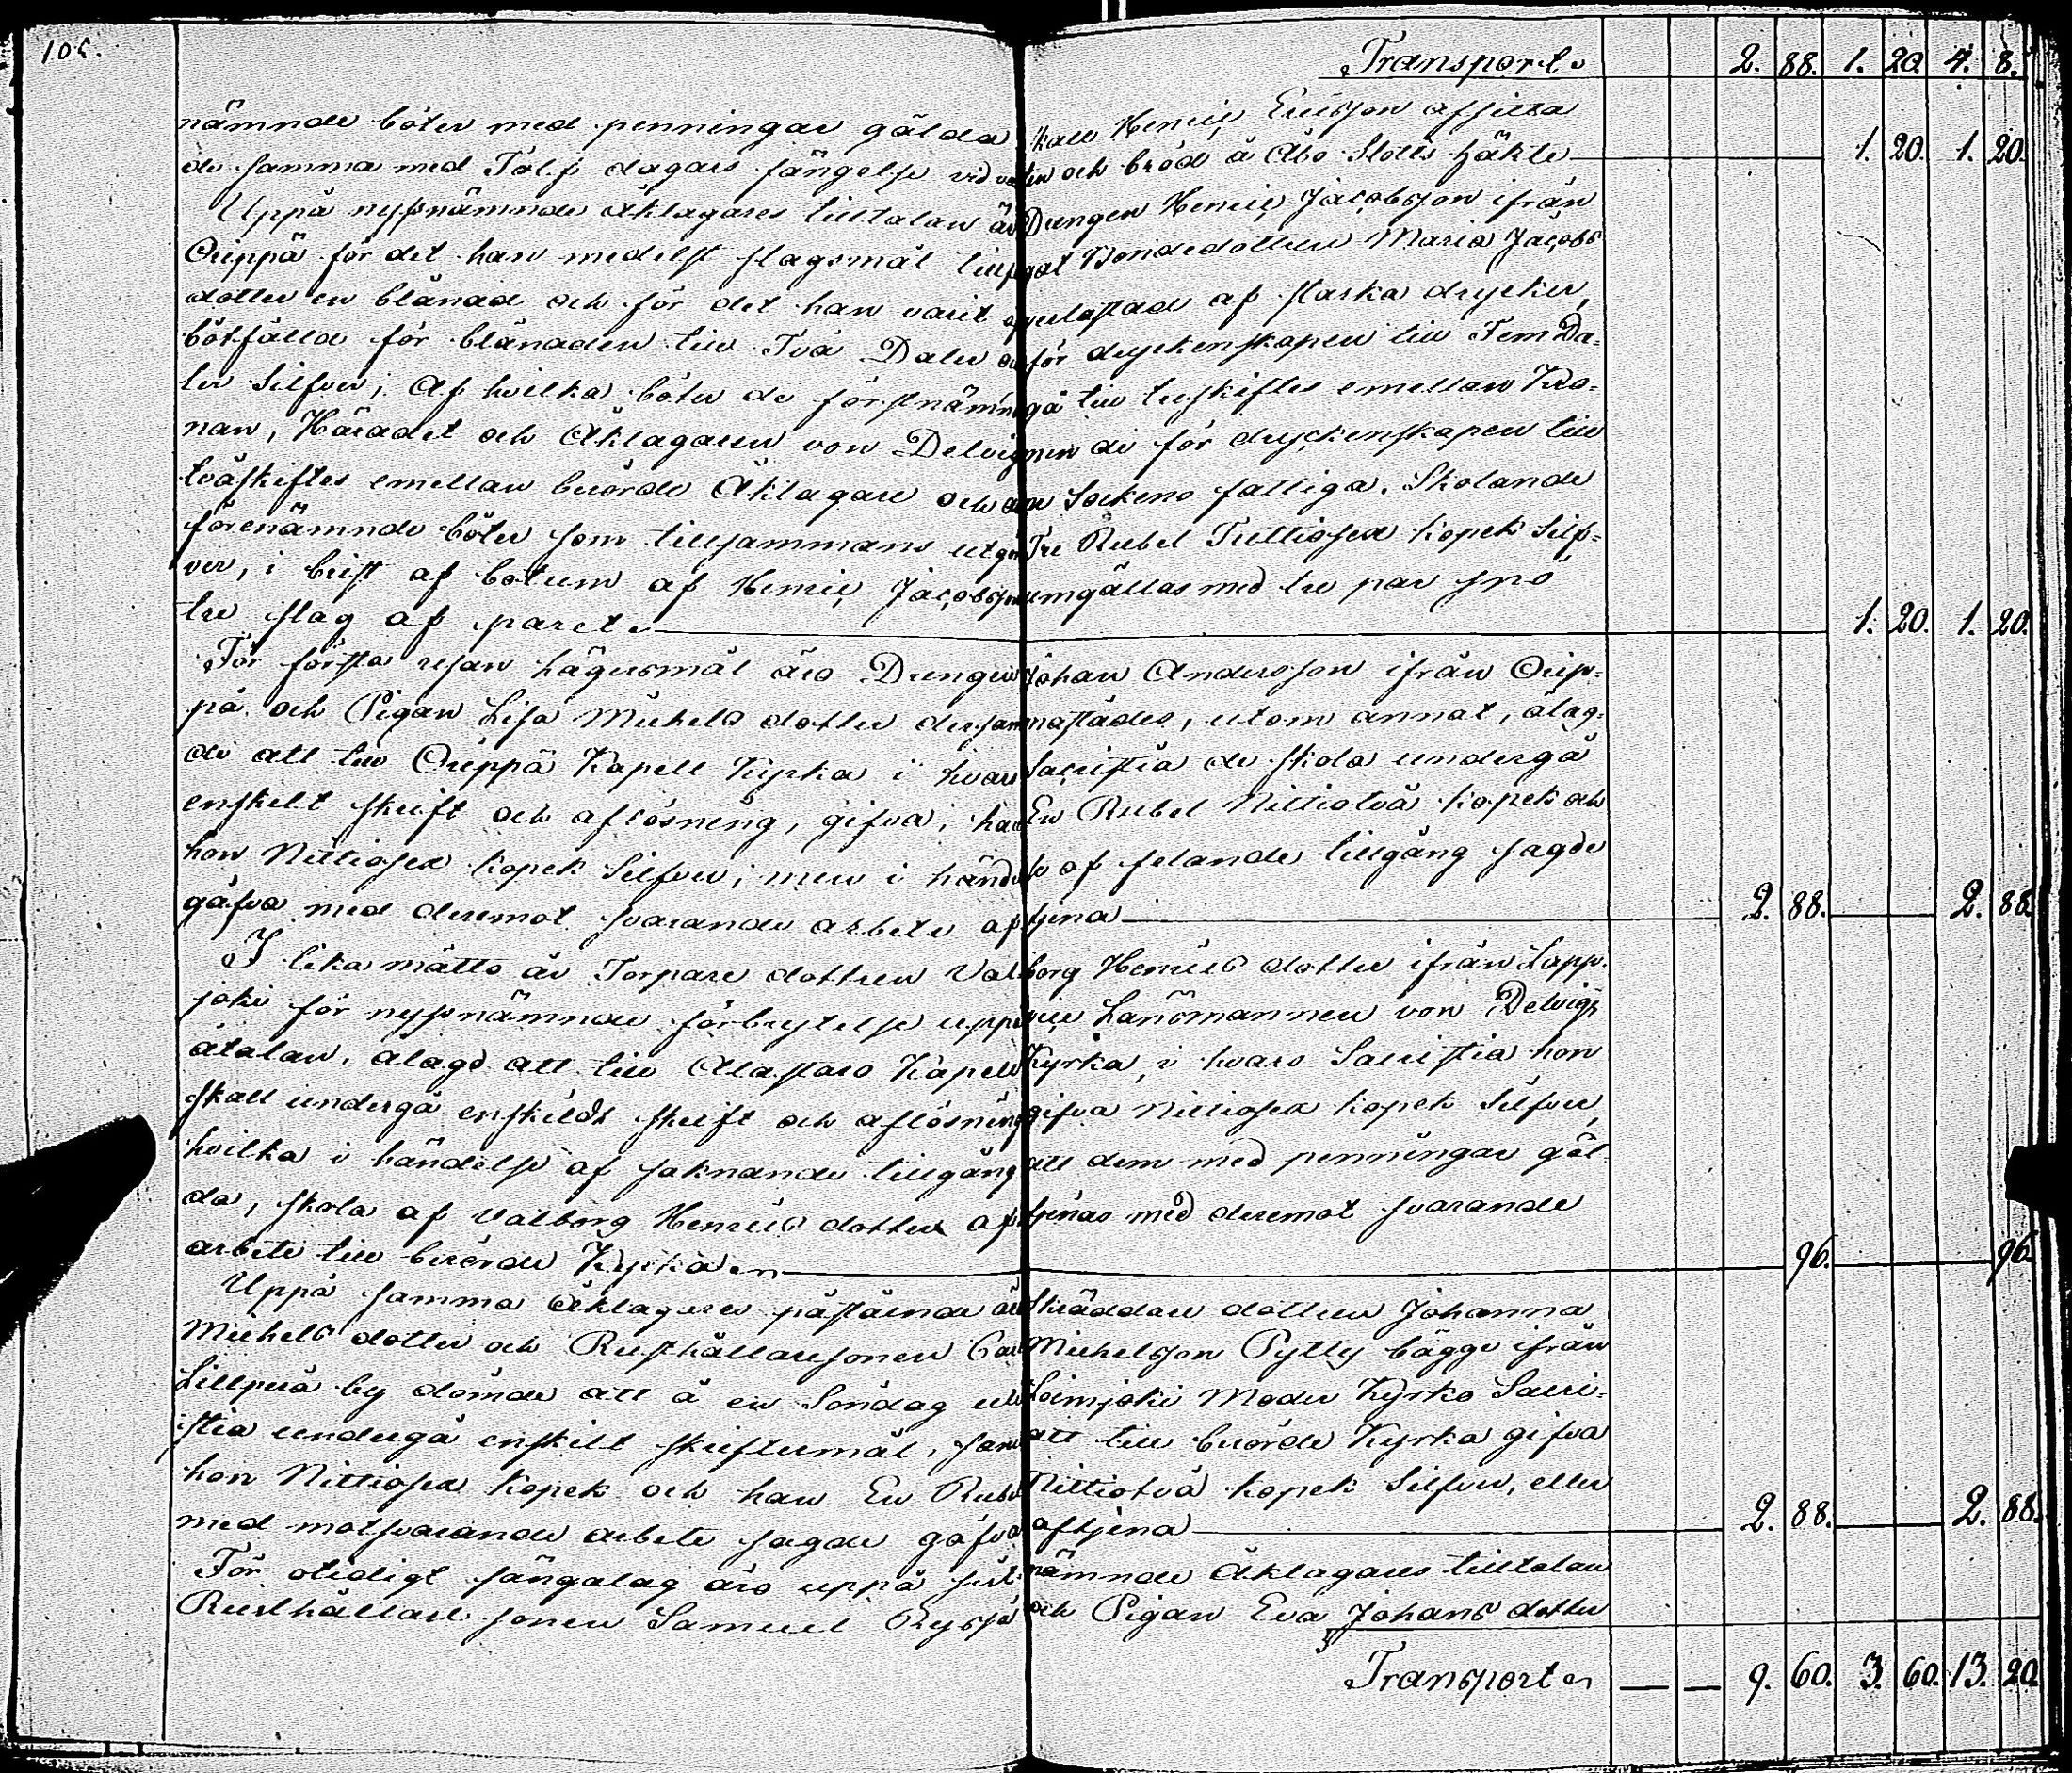 105.
Transport 2. 88. 1. 20. 4. 8.
nämnde böter med penningar gälda skall Henric Ericsson afsitta
de samma med Tolf dagars fängelse vid vatten och bröd å Åbo Slotts häkte 1. 20. 1. 20.
Uppå nyssnämnde åklagares tilltalan är Drengen Henric Jacobsson ifrån
Orippä för det han medelst slagsmål tillfogat Bondedottren Maria Jacobs
dotter en blånad och för det han varit öfverlastad af starka drycker,
bötfälld för blånaden till Två Daler och för dryckenskapen till Fem Da=
ler Silfver; Af hvilka böter de förstnämnde gå till treskiftes emellan Kro=
nan, Häradet och Åklagaren von Delvig men de för dryckenskapen till
tväskiftes emellan berörde Åklagare och Sockens fattiga. Skolande
förenämnde böter som tillsammans utgöra Tre Rubel Trettiosex kopek Silf=
ver, i brist af botum af Henric Jacobsson umgällas med tre par spö
tre slag af paret 1. 20. 1. 20.
För första resan lägersmål äro Drengen Johan Andersson ifrån Orip=
pä och Pigan Lisa Michels dotter dersammastädes, utom annat, ålag=
de att till Orippä Kapell Kyrka i hvars Sacristia de skola undergå
enskilt skrift och aflösning, gifva, han En Rubel Nittiotvå kopek och
hon Nittiosex kopek Silfver; men i händelse af felande tillgång sagde
gåfva med deremot svarande arbete aftjena 2. 88. 2. 88.
I lika måtto är Torpare dottren Valborg Henrics dotter ifrån Lapp=
joki för nyssnämnde förbrytelse uppå Länsmannen von Delvigs
åtalan, ålagd att till Alastaro Kapell Kyrka, i hvars Sacristia hon
skall undergå enskildt skrift och aflösning gifva Nittiosex kopek Silfver,
hvilka i händelse af saknande tillgång att dem med penningar gäl=
da, skola af Valborg Henrics dotter aftjenas med deremot svarande
arbete till berörde Kyrka 96. 96.
Uppå samma Åklagares påstående äro Skräddare dottren Johanna
Michels dotter och Rusthållaresonen Carl Michelsson Pytty bägge ifrån
Lillperä by dömde att å en Söndag uti Loimjoki Moder Kyrko Sacri=
stia undergå enskilt skriftermål, samt att till berörde Kyrka gifva
hon Nittiosex Kopek och han En Rubel Nittiotvå kopek Silfver, eller
med motsvarande arbete sagde gåfva aftjena 2. 88. 2. 88.
För otidigt sängalag äro uppå sist nämnde Åklagares tilltalan
Rusthållare sonen Samuel och Pigan Eva Johans dotter
Transport 9. 60. 3. 60. 13. 20.